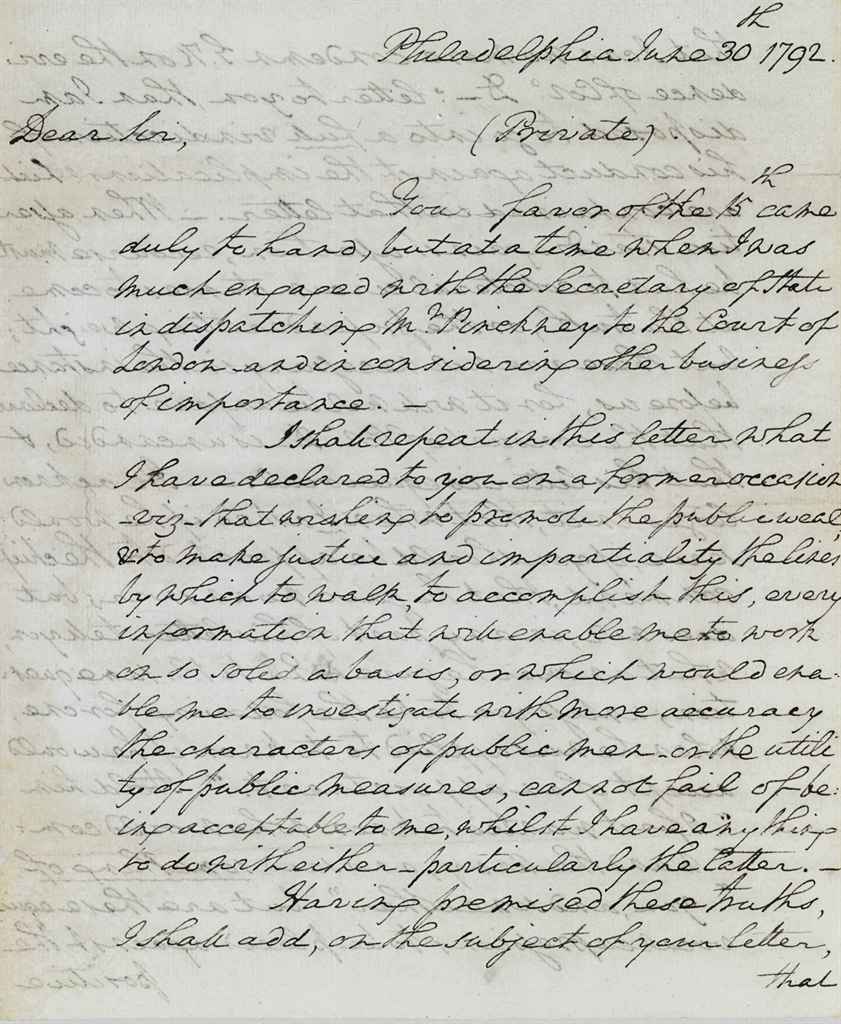 Philadelphia June 30th 1792.
Dear Sir,
(Private)
You favor of the 15th came
duly to hand, but at a time when I was
much engaged with the Secretary of State
in dispatching Mr Pinckney to the Court of
London - and in considering other business
of importance. —
I shall repeat in this letter what
I have declared to you on a former occasion
-viz- that wishing to promote the public weal,
& to make justice and impartiality the lines
by which to walk, to accomplish this, every
information that will enable me to work
on so solid a basis, or which would ena-
ble me to investigate with more accuracy
the characters of public men - or the utili
ty of public measures, cannot fail of be-
ing acceptable to me, whilst I have any thing
to do with either - particularly the latter. —
Having premised these truths,
I shall add, on the subject of your letter,
that